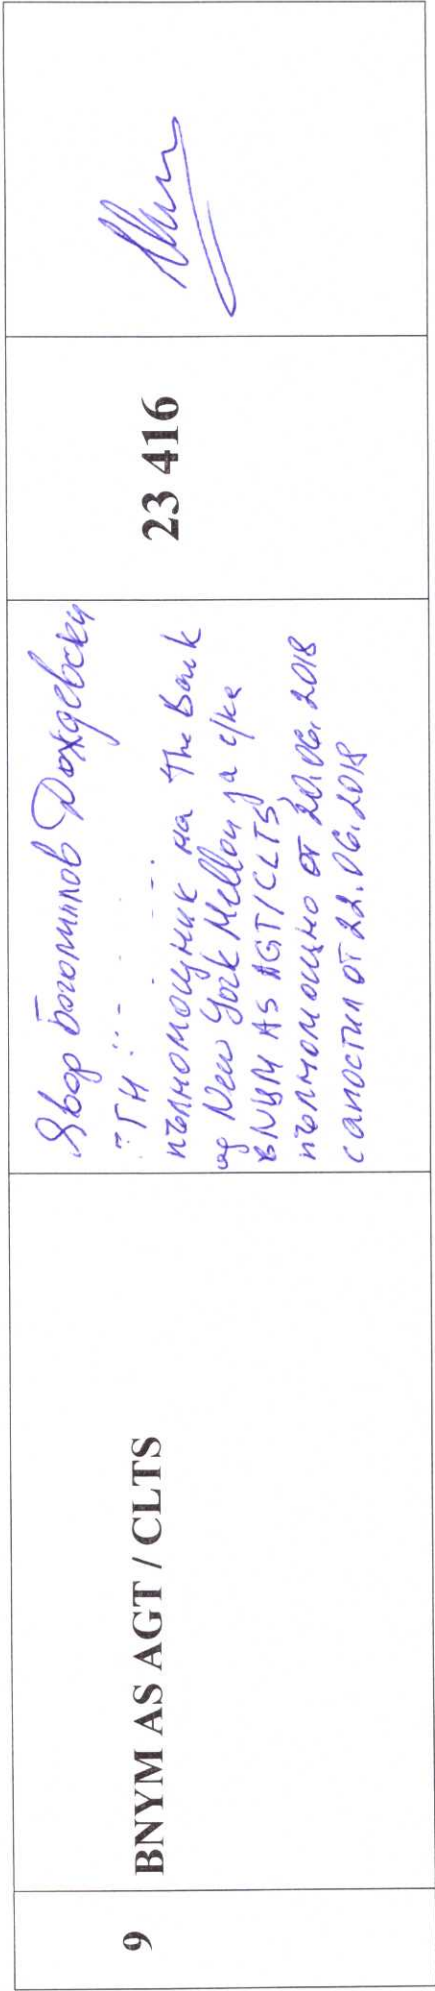 9
BNYM AS AGT / CLTS
Явор Богомилов Дождевски
ЕГН:
пълномощник на The Bank
of New York Mellon за с/ка
BNYM AS AGT/CLTS
пълномощно от 20.06.2018
с апостил от 22.06.2018
23 416